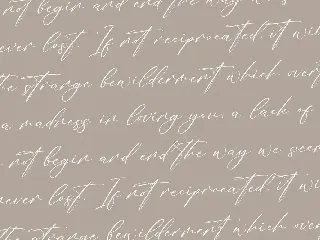 not begin and end the way
never lost. If not reciprocated, it
the strange bewilderment which
a madness in loving you, a lack of
not begin and end the way we
never lost. If not reciprocated, it
the strange bewilderment which